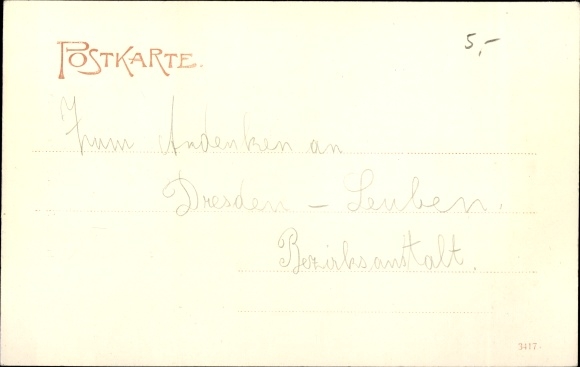 POSTKARTE.
5,-
Zum Andenken an
Dresden - Leuben.
Bezirksanstalt.
3417